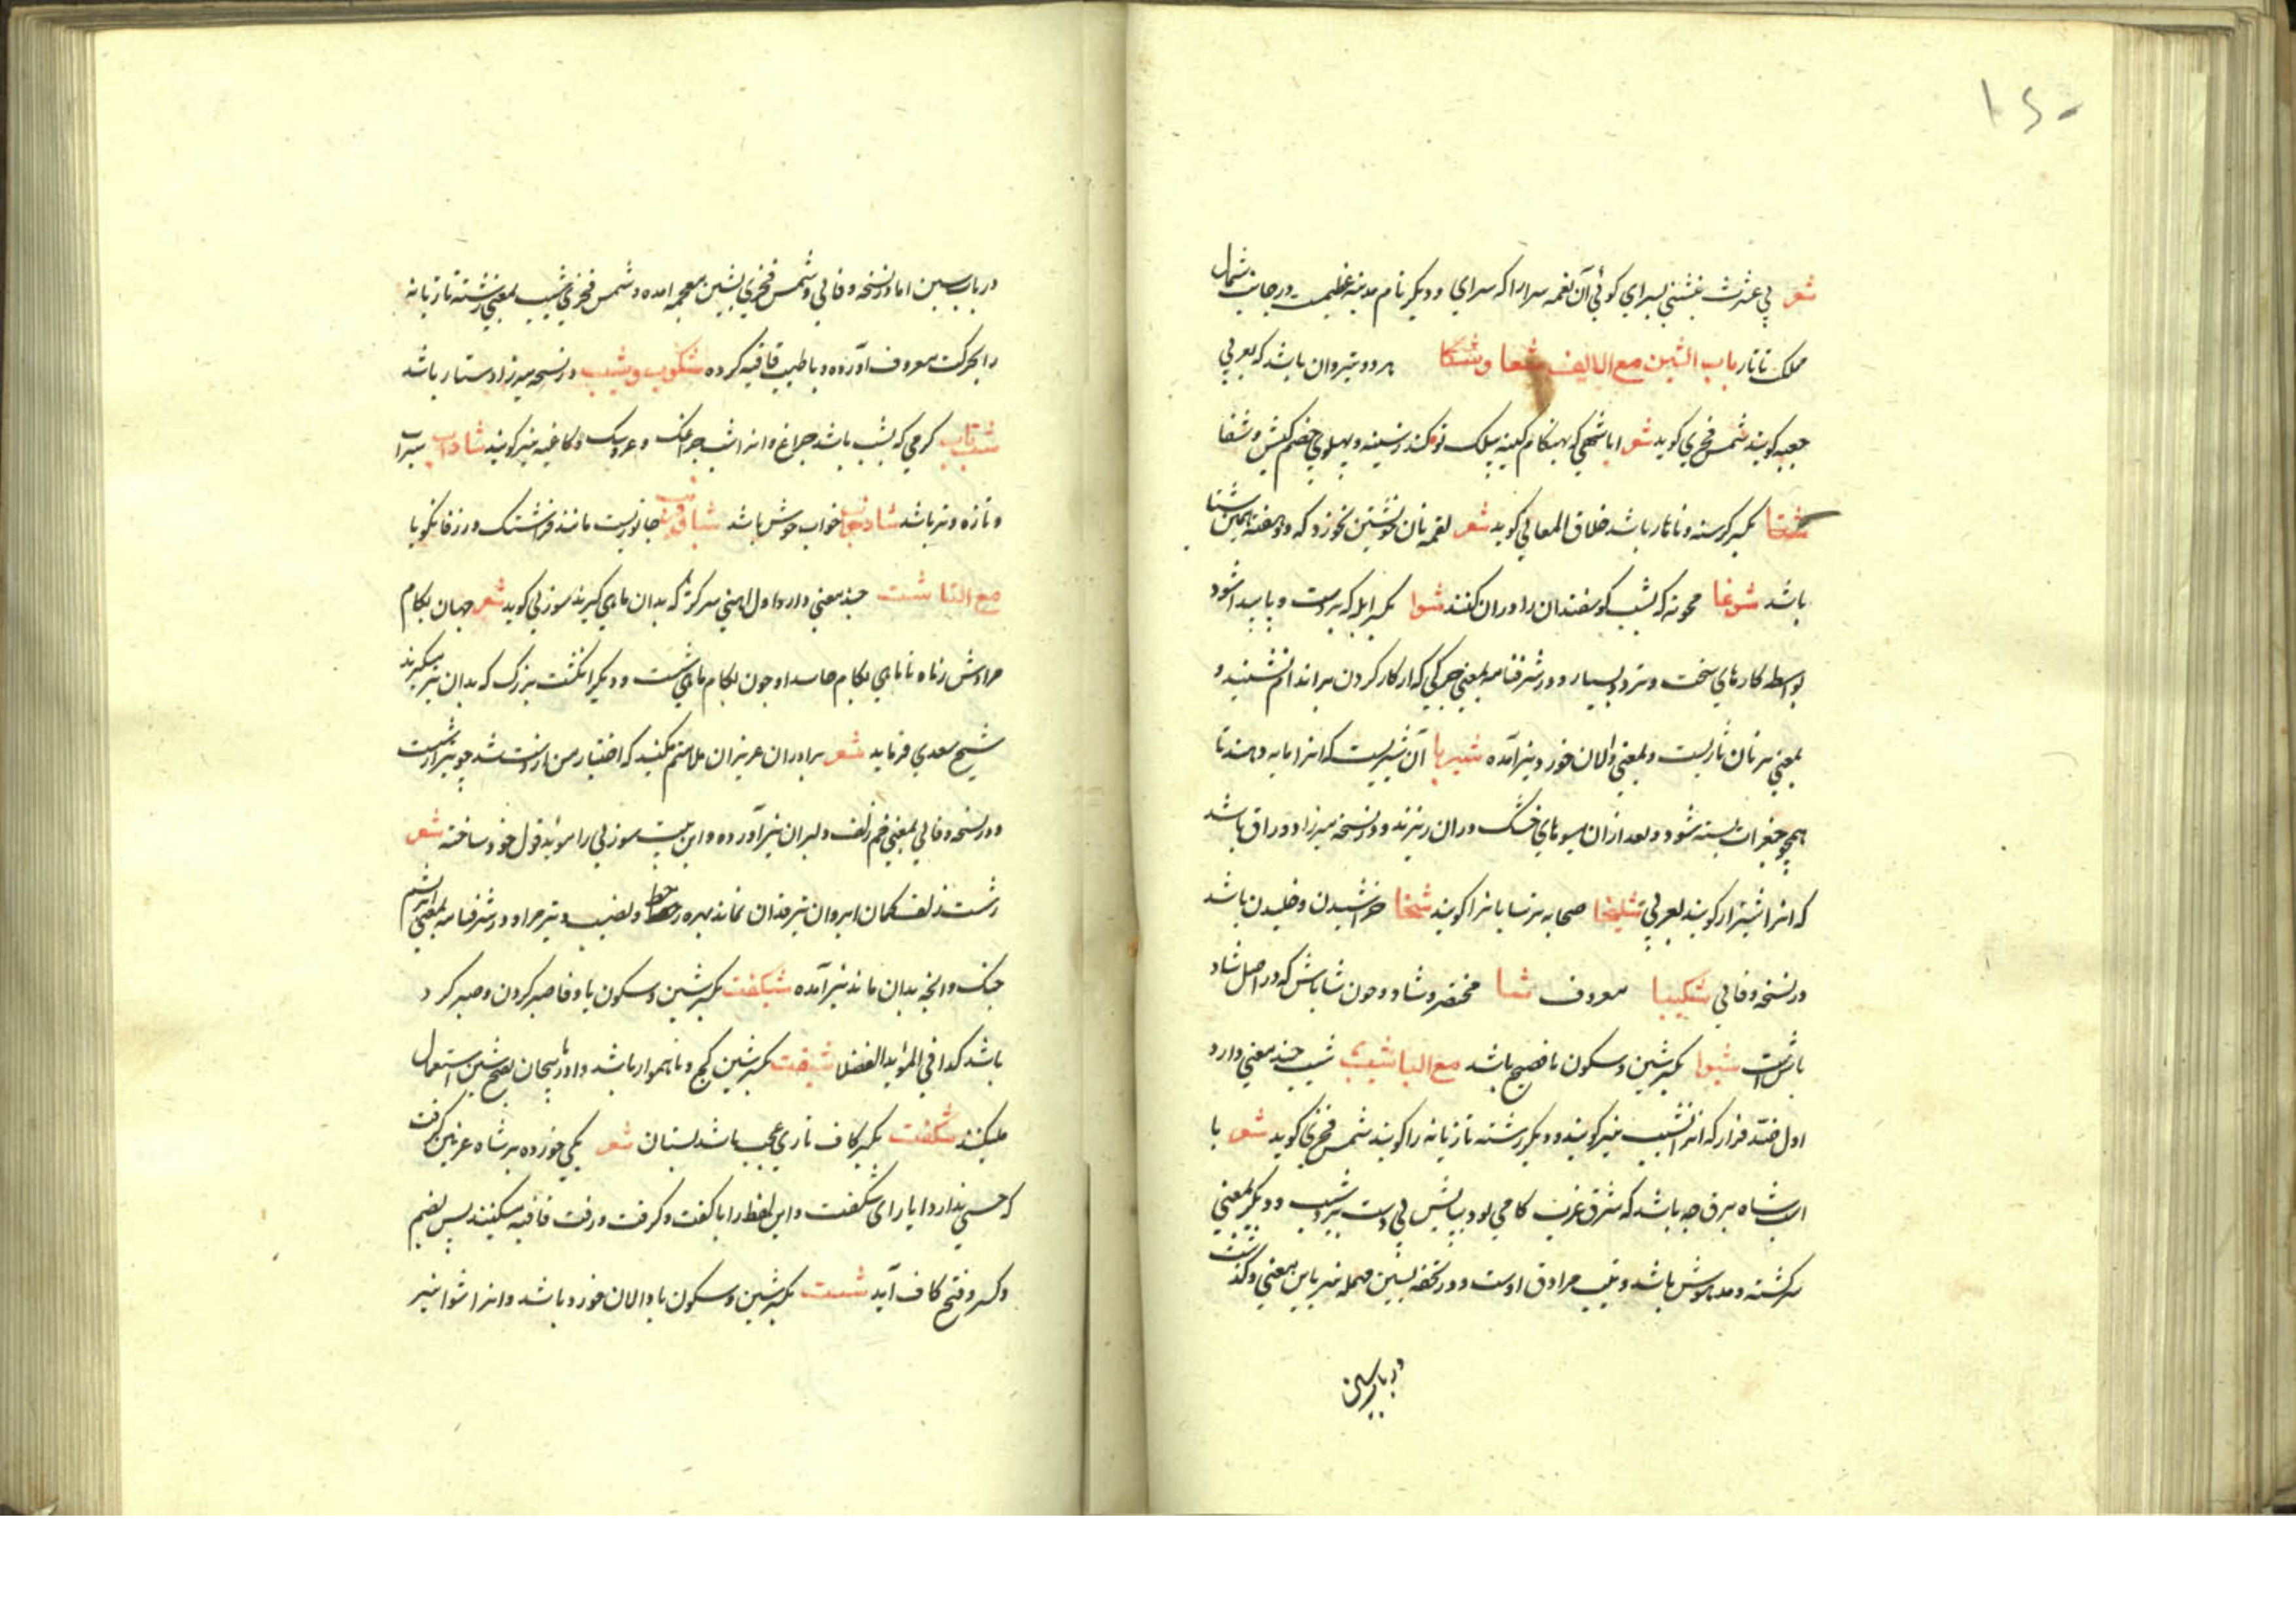 ۱۶۰
شعر پی عشرت نشینی بسرای کوئی آن نغمه سرا را که سرای و دیگر نام مدینه عظیمست در جانب شمال
ملک تاتار باب الشین مع الالف شغا و شکا هر دو تیردان باشد که بعربی
جعبه کویند شمس فخری کوید شعر ایا شهی که بهنکام کینه پیلک تو کند ز سینه و پهلوی خصم کیش و شغا
شتا بکسر کرسنه و ناهار باشد خلاق المعالی کوید شعر لقمه نان خویشتن نخورد که دو هفته
باشد شوغا محوته که شب کوسفندان را در ان کنند شوا بکسر ابله که بر دست و پا پیدا شود
بواسطه کارهای سخت و تردد بسیار و در شرفنامه بمعنی چرکی که از کار کردن بر اندام نشیند و
بمعنی بر نان تاریست و بمعنی والان خورد نیز آمده شیربا آن شیریست که انرا مایه دهند تا
همچو جغرات بسته شود و بعد ازان میوهای خشک دران ریزند و در نسخه میرزا دوراق باشد
که انرا شیراز کویند بعربی شلیخا صحابه ترسایانرا کویند شخا خراشیدن و خلیدن باشد
در نسخه وفائی شکیبا معروف شا مختصر و شاد و چون شاباش که در اصل شاد
باش است شیوا بکسر شین و سکون یا فصیح باشد مع البا شیب شیب چند معنی دارد
اول ضد فراز که انرا نشیب نیز کویند و دیکر رشته تازیانه را کویند شمس فخری کوید شعر با
اسب شاه برق چه باشد که شرق غرب کامی بود بپایش بی دست برد شیب و دیکر بمعنی
سرکشته و مدهوش باشد و تیب مرادف اوست و در تحفه بسین مهمله نیز باین معنی و کذشت
در باب سین
در باب سین اما در نسخه وفائی و شمس فخری بشین معجمه امده و شمس فخری شیب بمعنی رشته تازیانه
را بحرکت معروف آورده و با طیب قافیه کرده شکوب و شیب در نسخه میرزا دستار باشد
شب تاب کرمی که بشب باشد چراغ و انرا شب چراغک و عروسک و کاغنه نیز کویند شاداب سیراب
و تازه و تر باشد شاد خواب خواب خوش باشد جانوریست مانند فراشتک و رزفانکویا
مع التا شست چند معنی دارد اول اهنی سر کژ که بدان ماهی کیرند سوزنی کوید شعر جهان بکام
مرادش زناه تا ماهی بکام حاسد او چون بکام ماهی شست و دیکر انکشت بزرک که بدان تیر میکیرند
شیخ سعدی فرماید شعر برادران عزیزان ملامتم مکنید که اختیار من از دست شد چو تیر از شست
و در نسخه وفائی بمعنی خم زلف دلبران نیز آورده و این بیت سوزنی را مؤید قول خود ساخته شعر
ز شست زلف کمان ابروان تیر قدان نماند بهره و نصیب و تیر مراد و در شرفنامه بمعنی ابریشم
چنک و انچه بدان ماند نیز آمده شیکفت بکسر شین و سکون یا و فا صبر کردن و صبر کرد
باشد کذا فی المؤید الفضلا شیفت بکسر شین کج و ناهموار باشد و اذربایجان بفتح شین استعمال
میکنند شکفت بکسر کاف تازی عجب باشد لبستان شعر یکی خورده بر شاه غزنین کرفت
که حسنی ندارد ایاز ای شکفت و این لفظ را با کفت و کرفت و رفت قافیه میکنند پس بضم
و کسر و فتح کاف آید شیت بکسر شین و سکون یا والان خورد باشد و انرا شوا نیز